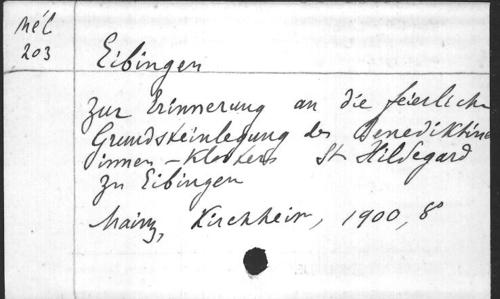 Mél
203
Eibingen
Zur Erinnerung an die feierliche
Grundsteinlegung des Benediktine
innen - Klosters St Hildegard
zu Eibingen
Mainz, Kirchheim, 1900, 8°